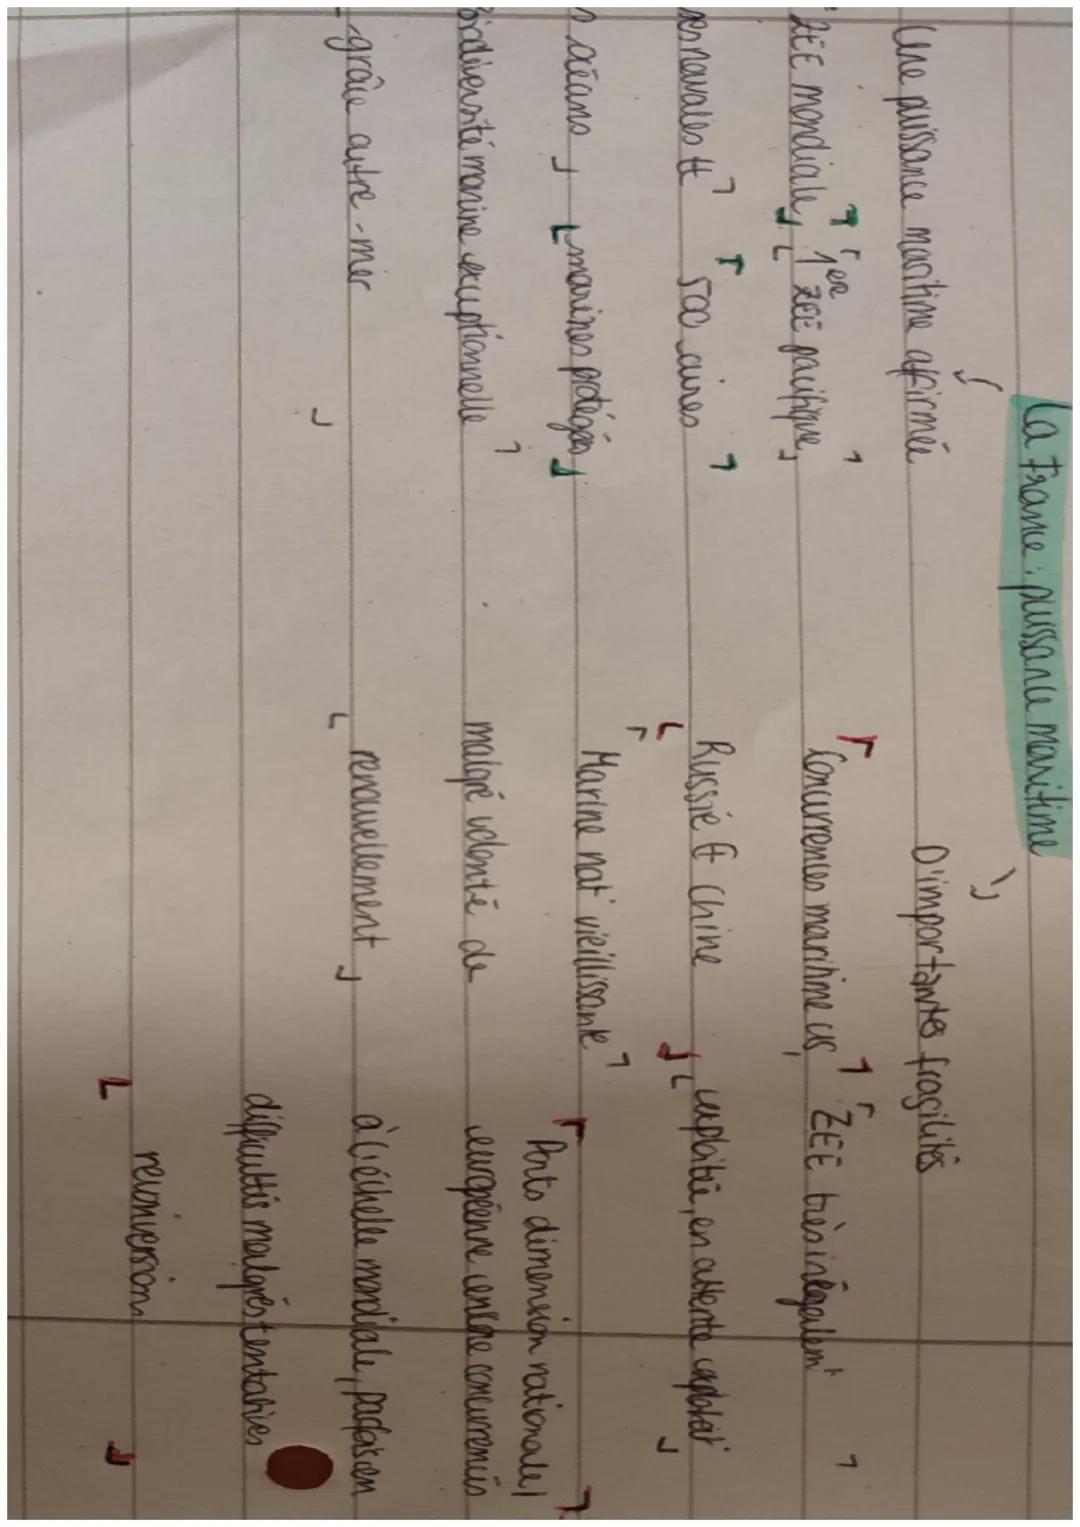 La France : puissance maritime
Une puissance maritime affirmée
D'importantes fragilités
ZEE mondiale,
1ère ZEE pacifique,
Concurrences maritime US
ZEE très inégalemt
navales et
500 aires
Russie et Chine
exploitée, en attente exploitat°
océans
marines protégés
Marine nat° vieillissante
Ports dimension nationale/
Biodiversité marine exceptionnelle
malgré volonté de
européenne encore concurrencés
grâce outre-mer
renouvellement
à l'échelle mondiale, parfois en
difficultés malgrés tentatives
reconversion